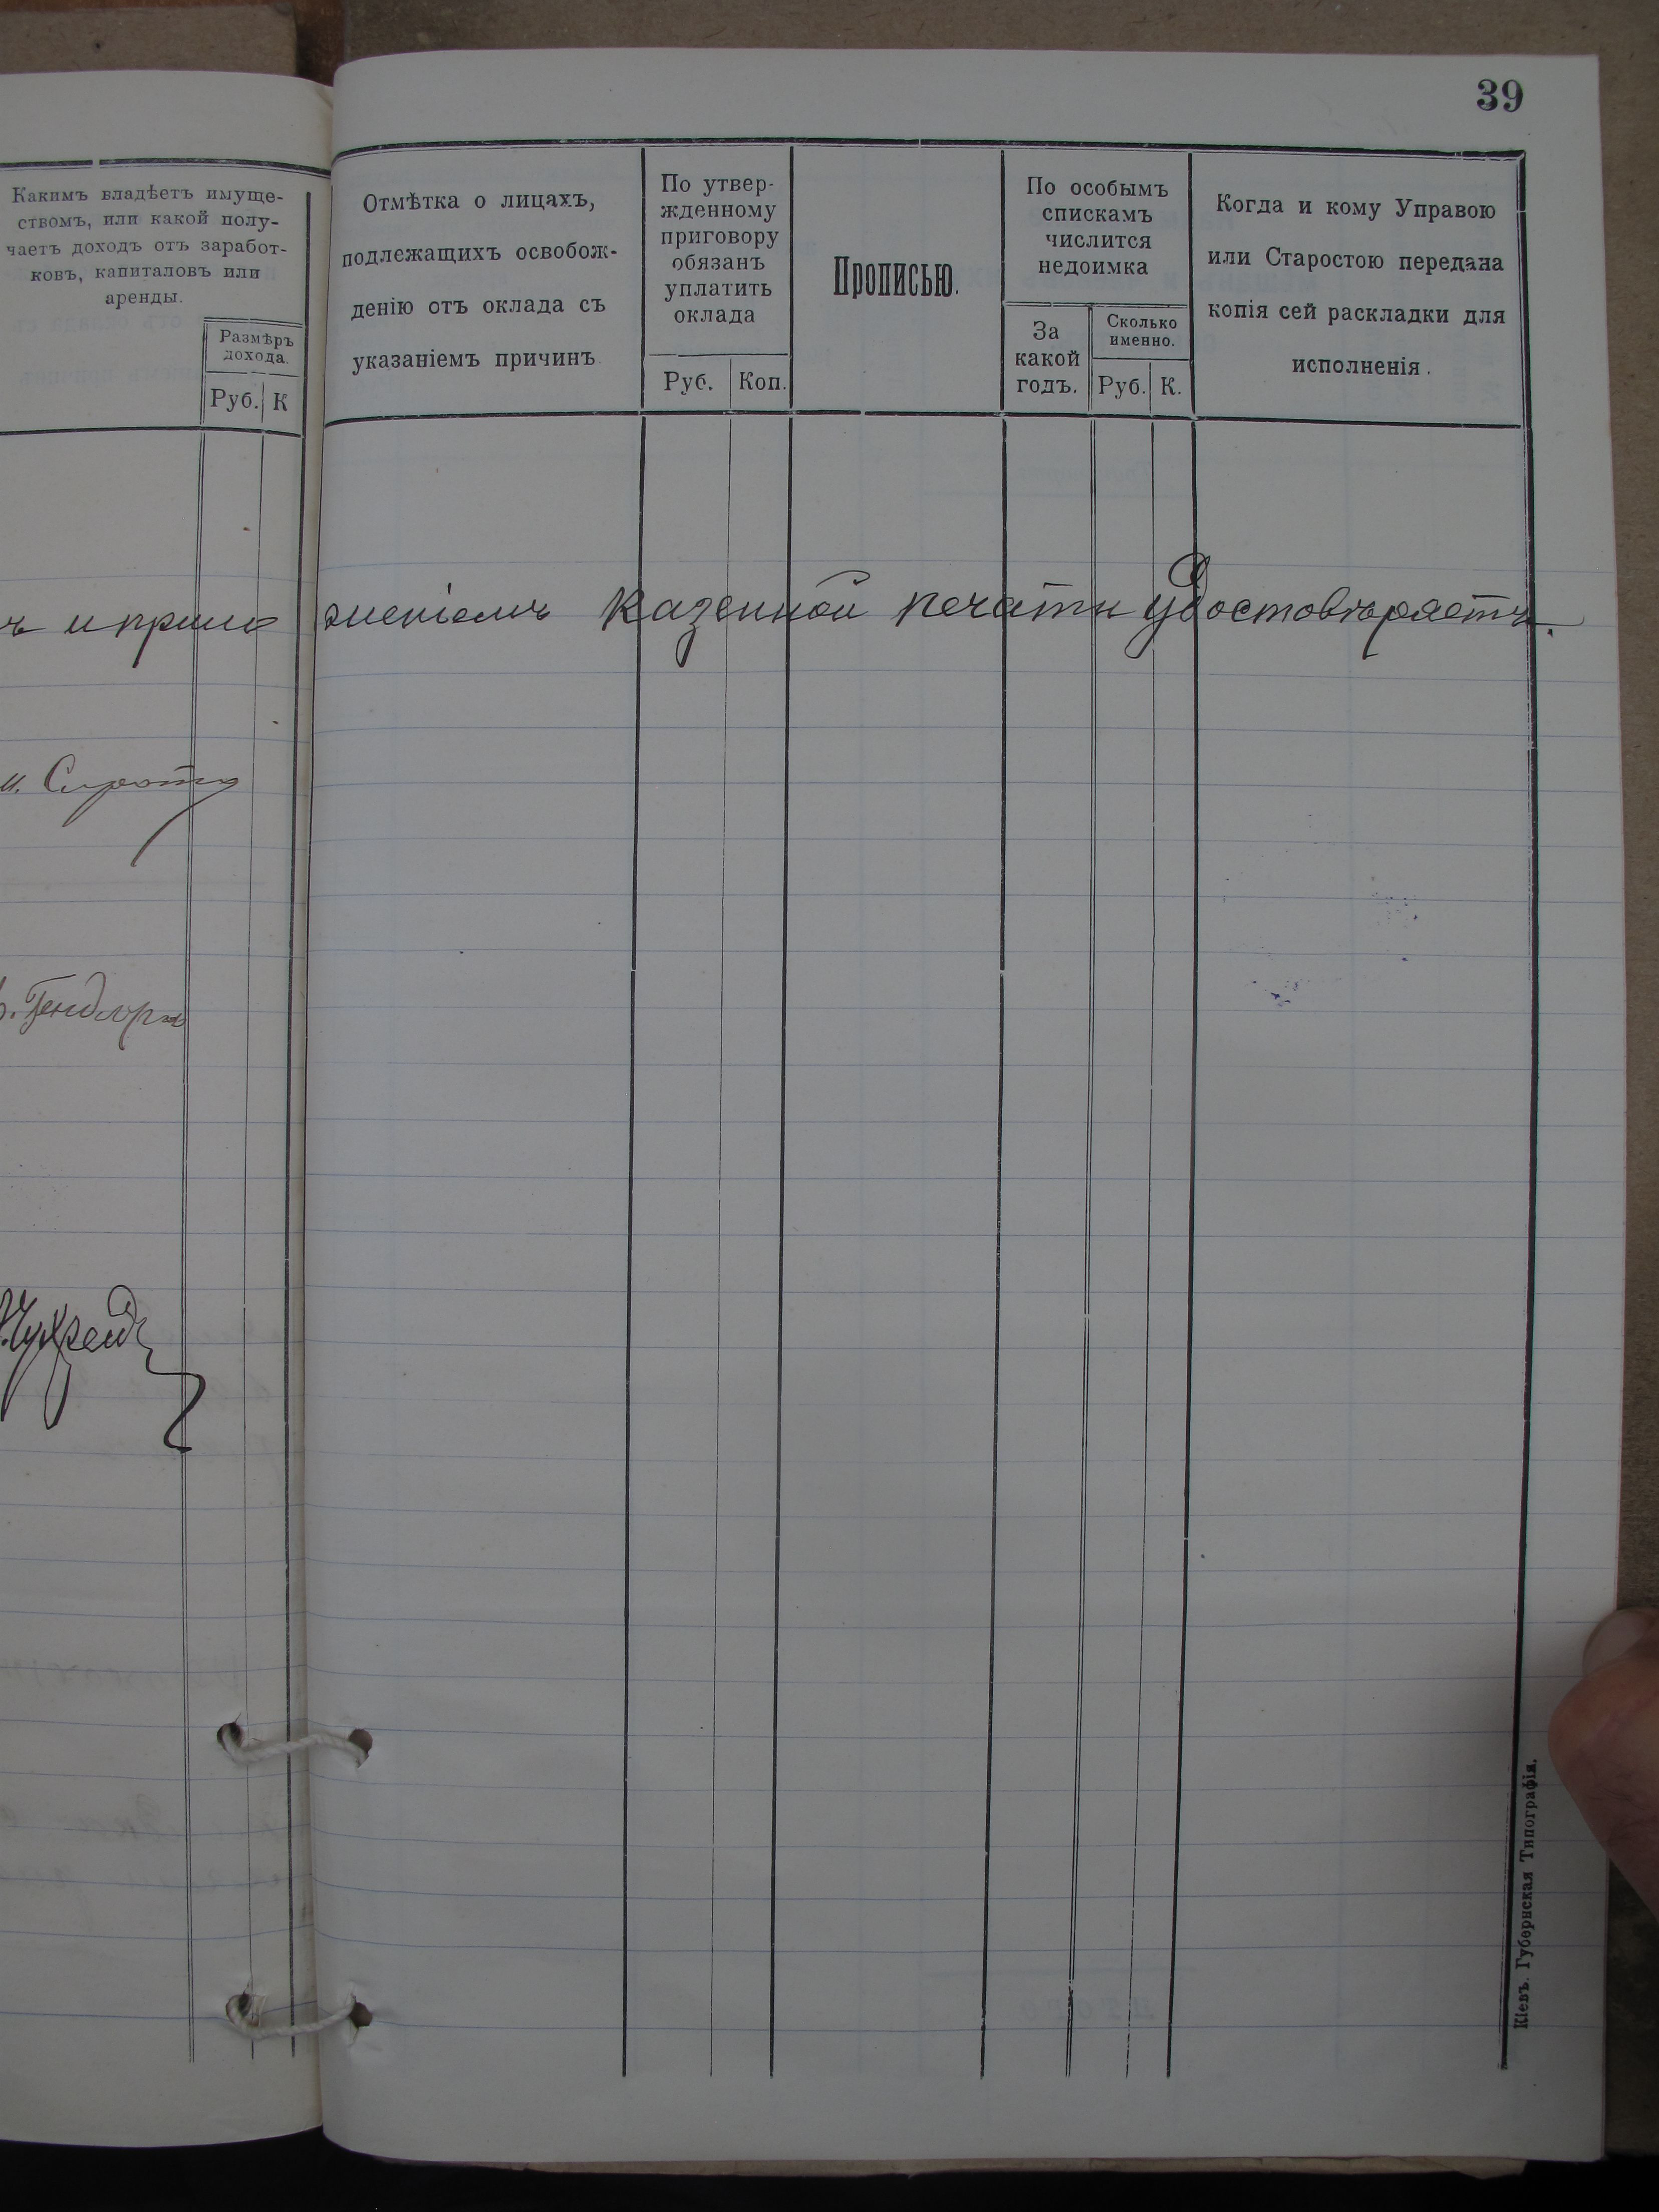 39
Какимъ владѣетъ имуще-
ствомъ, или какой полу-
чаетъ доходъ отъ заработ-
ковъ, капиталовъ или
аренды.
Размѣръ
дохода.
Руб. К
Отмѣтка о лицахъ,
подлежащихъ освобож-
денію отъ оклада съ
указаніемъ причинъ.
По утвер-
жденному
приговору
обязанъ
уплатить
оклада
Руб. Коп.
Прописью.
По особымъ
спискамъ
числится
недоимка
За
какой
годъ.
Сколько
именно.
Руб. К.
Когда и кому Управою
или Старостою передана
копія сей раскладки для
исполненія.
ъ и прило женіемъ казенной печати удостовѣряетъ.
Сирота
Кіевъ. Губернская Типографія.